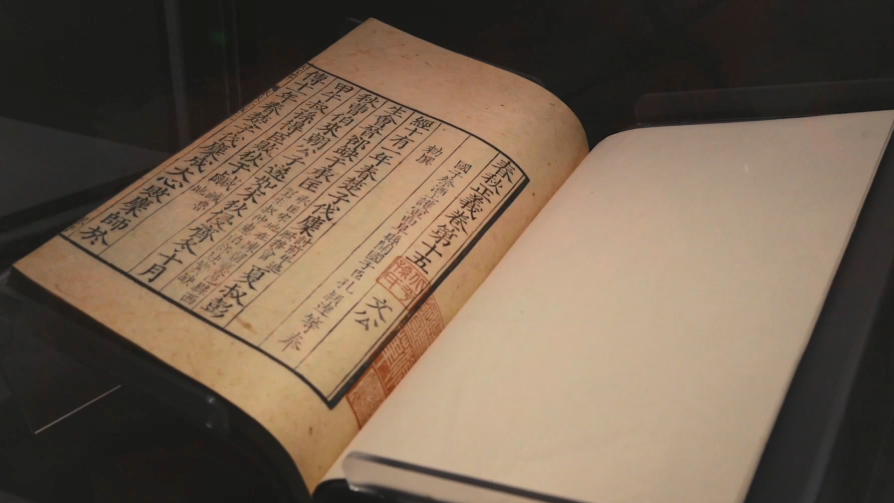 春秋正義卷第十五 文公
國子祭酒上護軍曲阜縣開國子臣孔穎達等奉
勅撰
經十有一年春楚子伐麇 夏叔彭
生會晉郤缺于承匡
秋曹伯來朝公子遂如宋狄侵齊冬十月
甲午叔孫得臣敗狄于鹹
傳十一年春楚子伐麇成大心敗麇師於